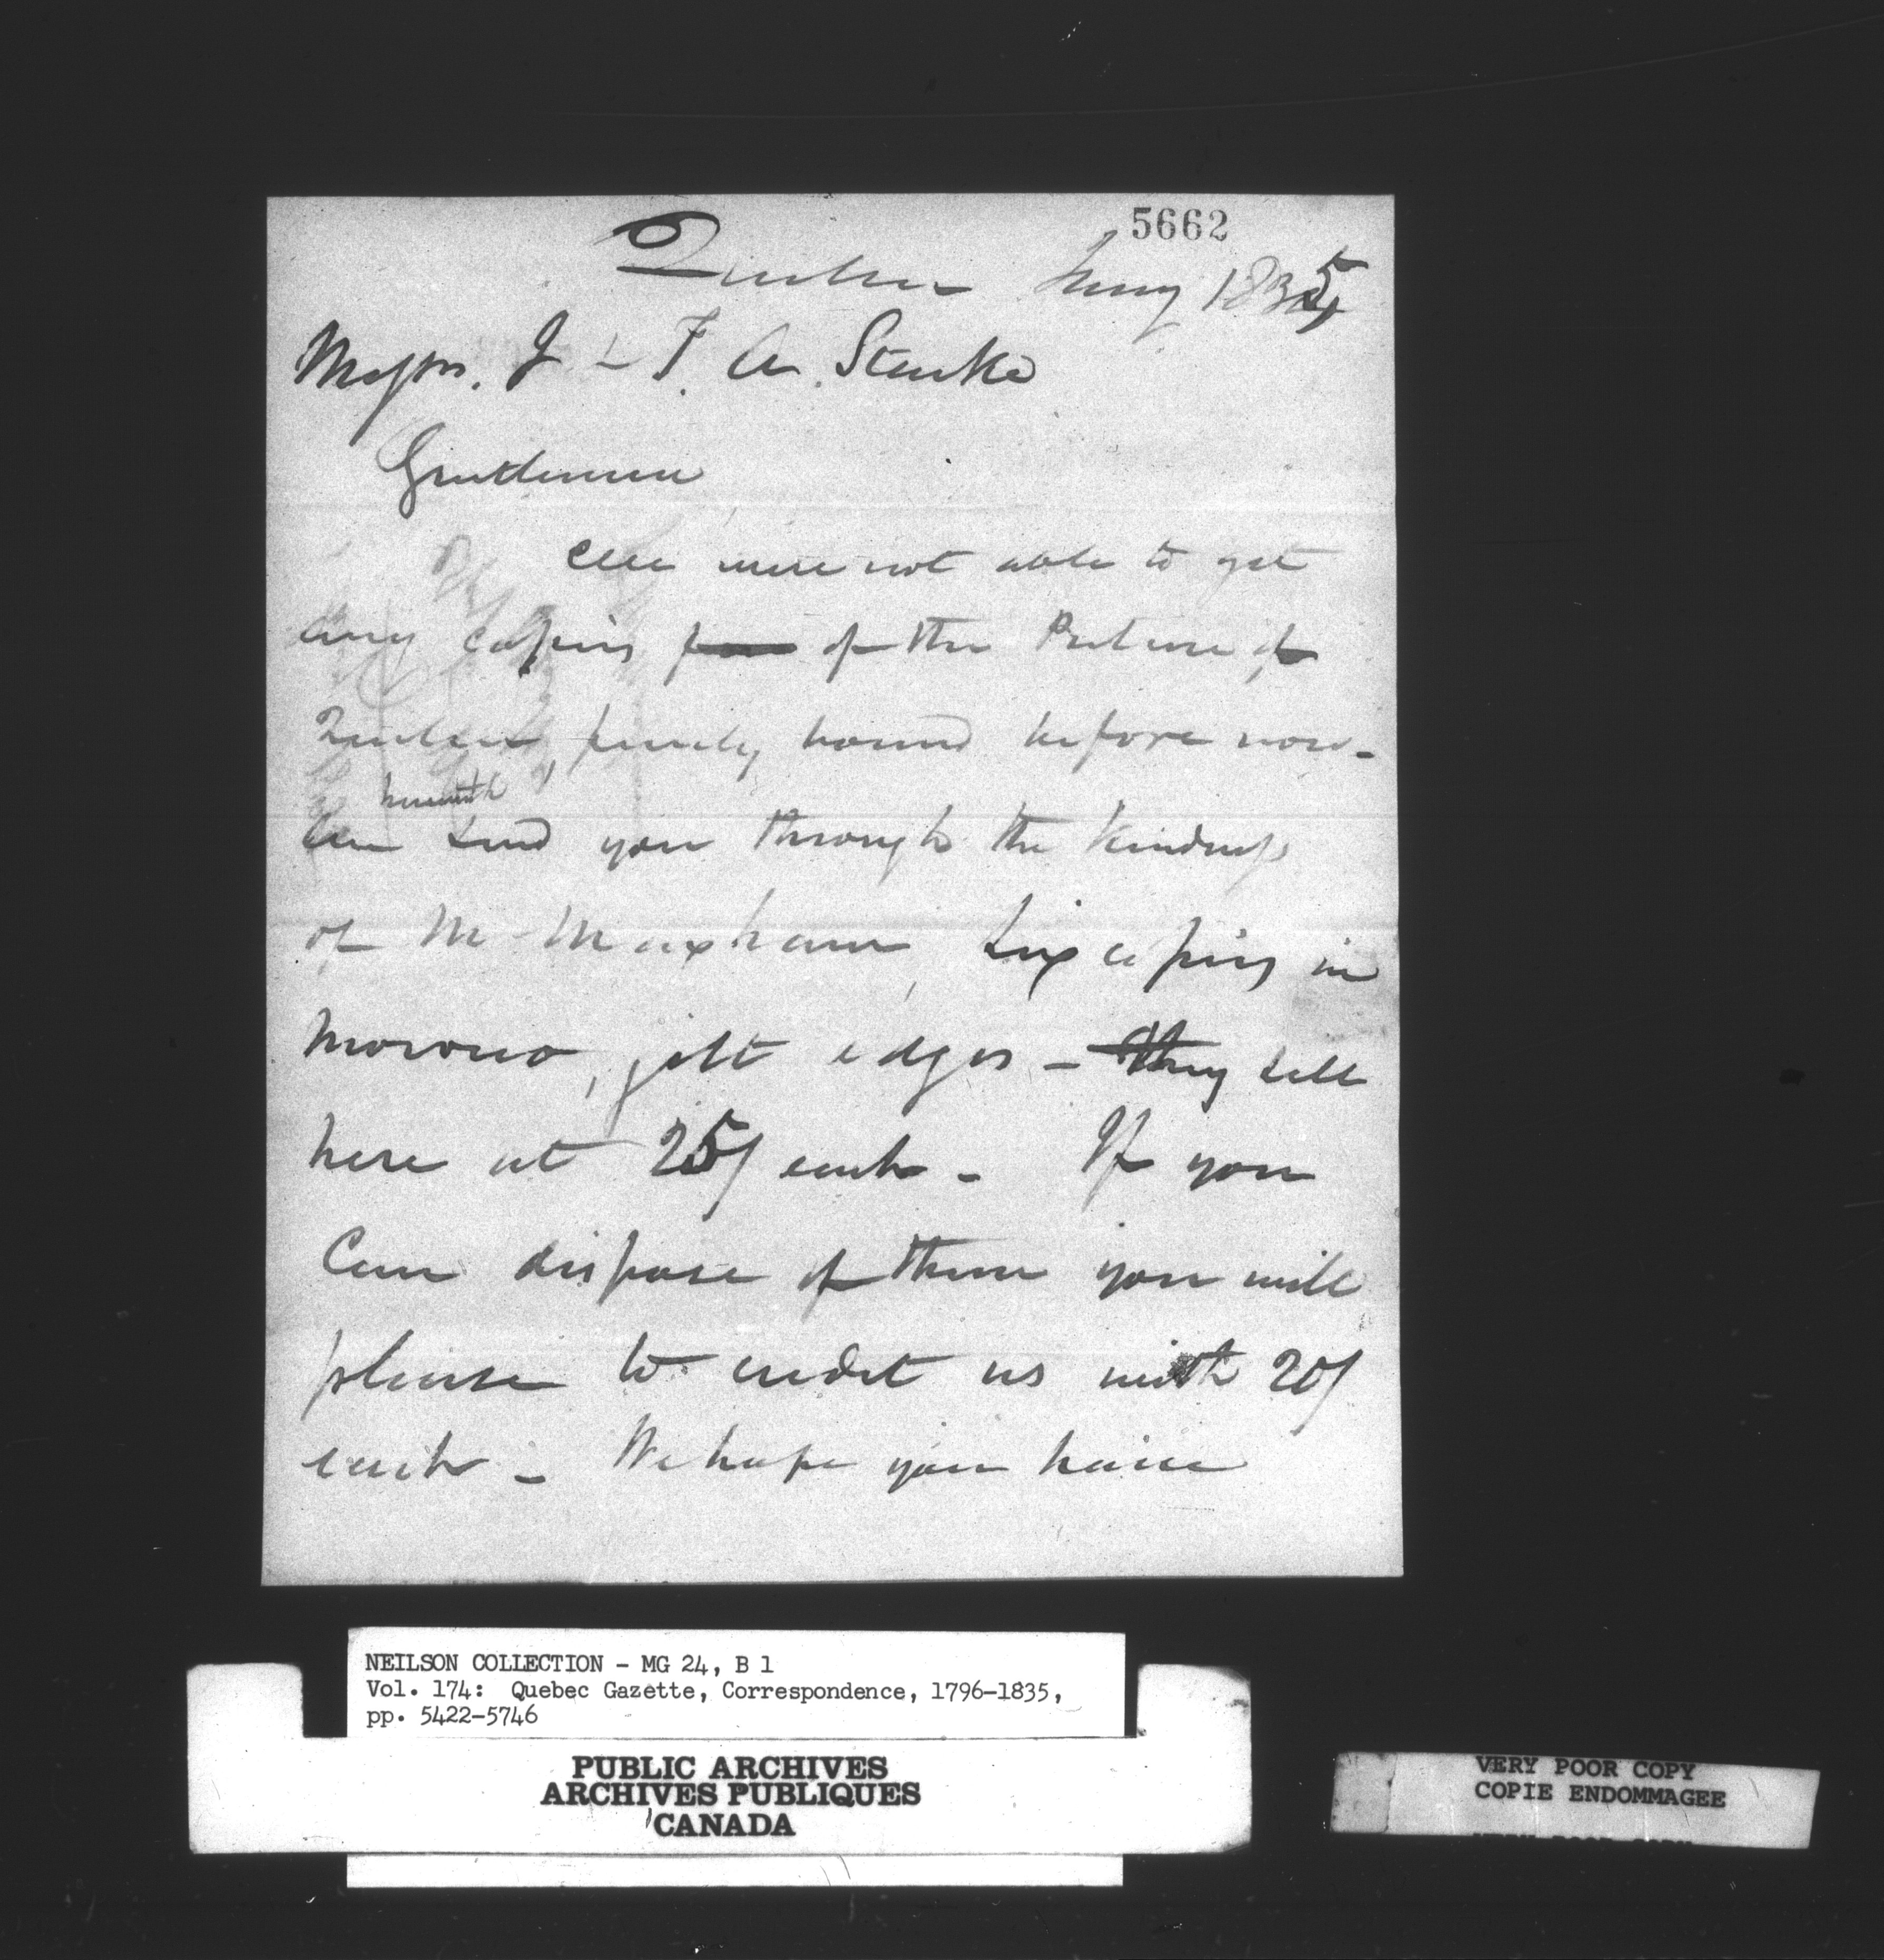 5662
Quebec Jany 1835
Messrs. J & F. A. Starke
Gentlemen
We were not able to get
any copies of the Picture of
Quebec, finely bound before now-
We herewith send you through the kindness
of Mr Maxham, six copies in
morocco, gilt edges - They sell
here at 25/ each - If you
Can dispose of them you will
please to credit us with 20/
each - We hope you have
NEILSON COLLECTION - MG 24, B 1
Vol. 174: Quebec Gazette, Correspondence, 1796-1835,
pp. 5422-5746
PUBLIC ARCHIVES
ARCHIVES PUBLIQUES
CANADA
VERY POOR COPY
COPIE ENDOMMAGEE